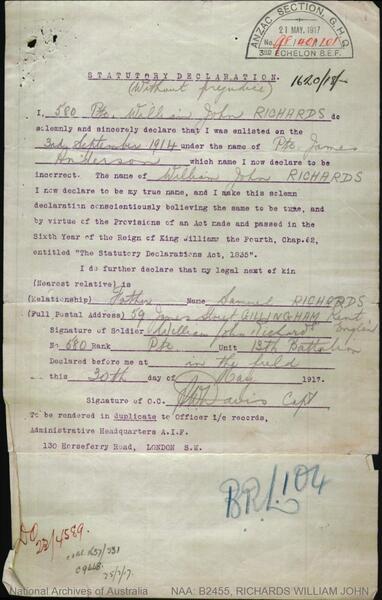 ANZAC SECTION, G.H.Q.
21 MAY. 1917
No.
3RD ECHELON B.E.F.
STATUTORY DECLARATION.
(Without prejudice)
1620/18/-
I, 580 Pte. William John RICHARDS do
solemnly and sincerely declare that I was enlisted on the
3rd September 1914 under the name of Pte. James
Anderson which name I now declare to be
incorrect. The name of William John RICHARDS
I now declare to be my true name, and I make this solemn
declaration conscientiously believing the same to be true, and
by virtue of the Provisions of an Act made and passed in the
Sixth Year of the Reign of King William the Fourth, Chap.62,
entitled "The Statutory Declarations Act, 1835".
I do further declare that my legal next of kin
(Nearest relative) is
(Relationship) Father Name Samuel RICHARDS
(Full Postal Address) 59 James Street GILLINGHAM Kent
England
Signature of Soldier William John Richards
No 580 Rank Pte / Unit 13th Battalion
Declared before me at in the field
this 30th day of May 1917.
Signature of O.C. Davis Capt
To be rendered in duplicate to Officer i/c records,
Administrative Headquarters A.I.F.
130 Horseferry Road, LONDON S.W.
BRL.104
DO
23/4589.
25/7/17.
National Archives of Australia
NAA: B2455, RICHARDS WILLIAM JOHN